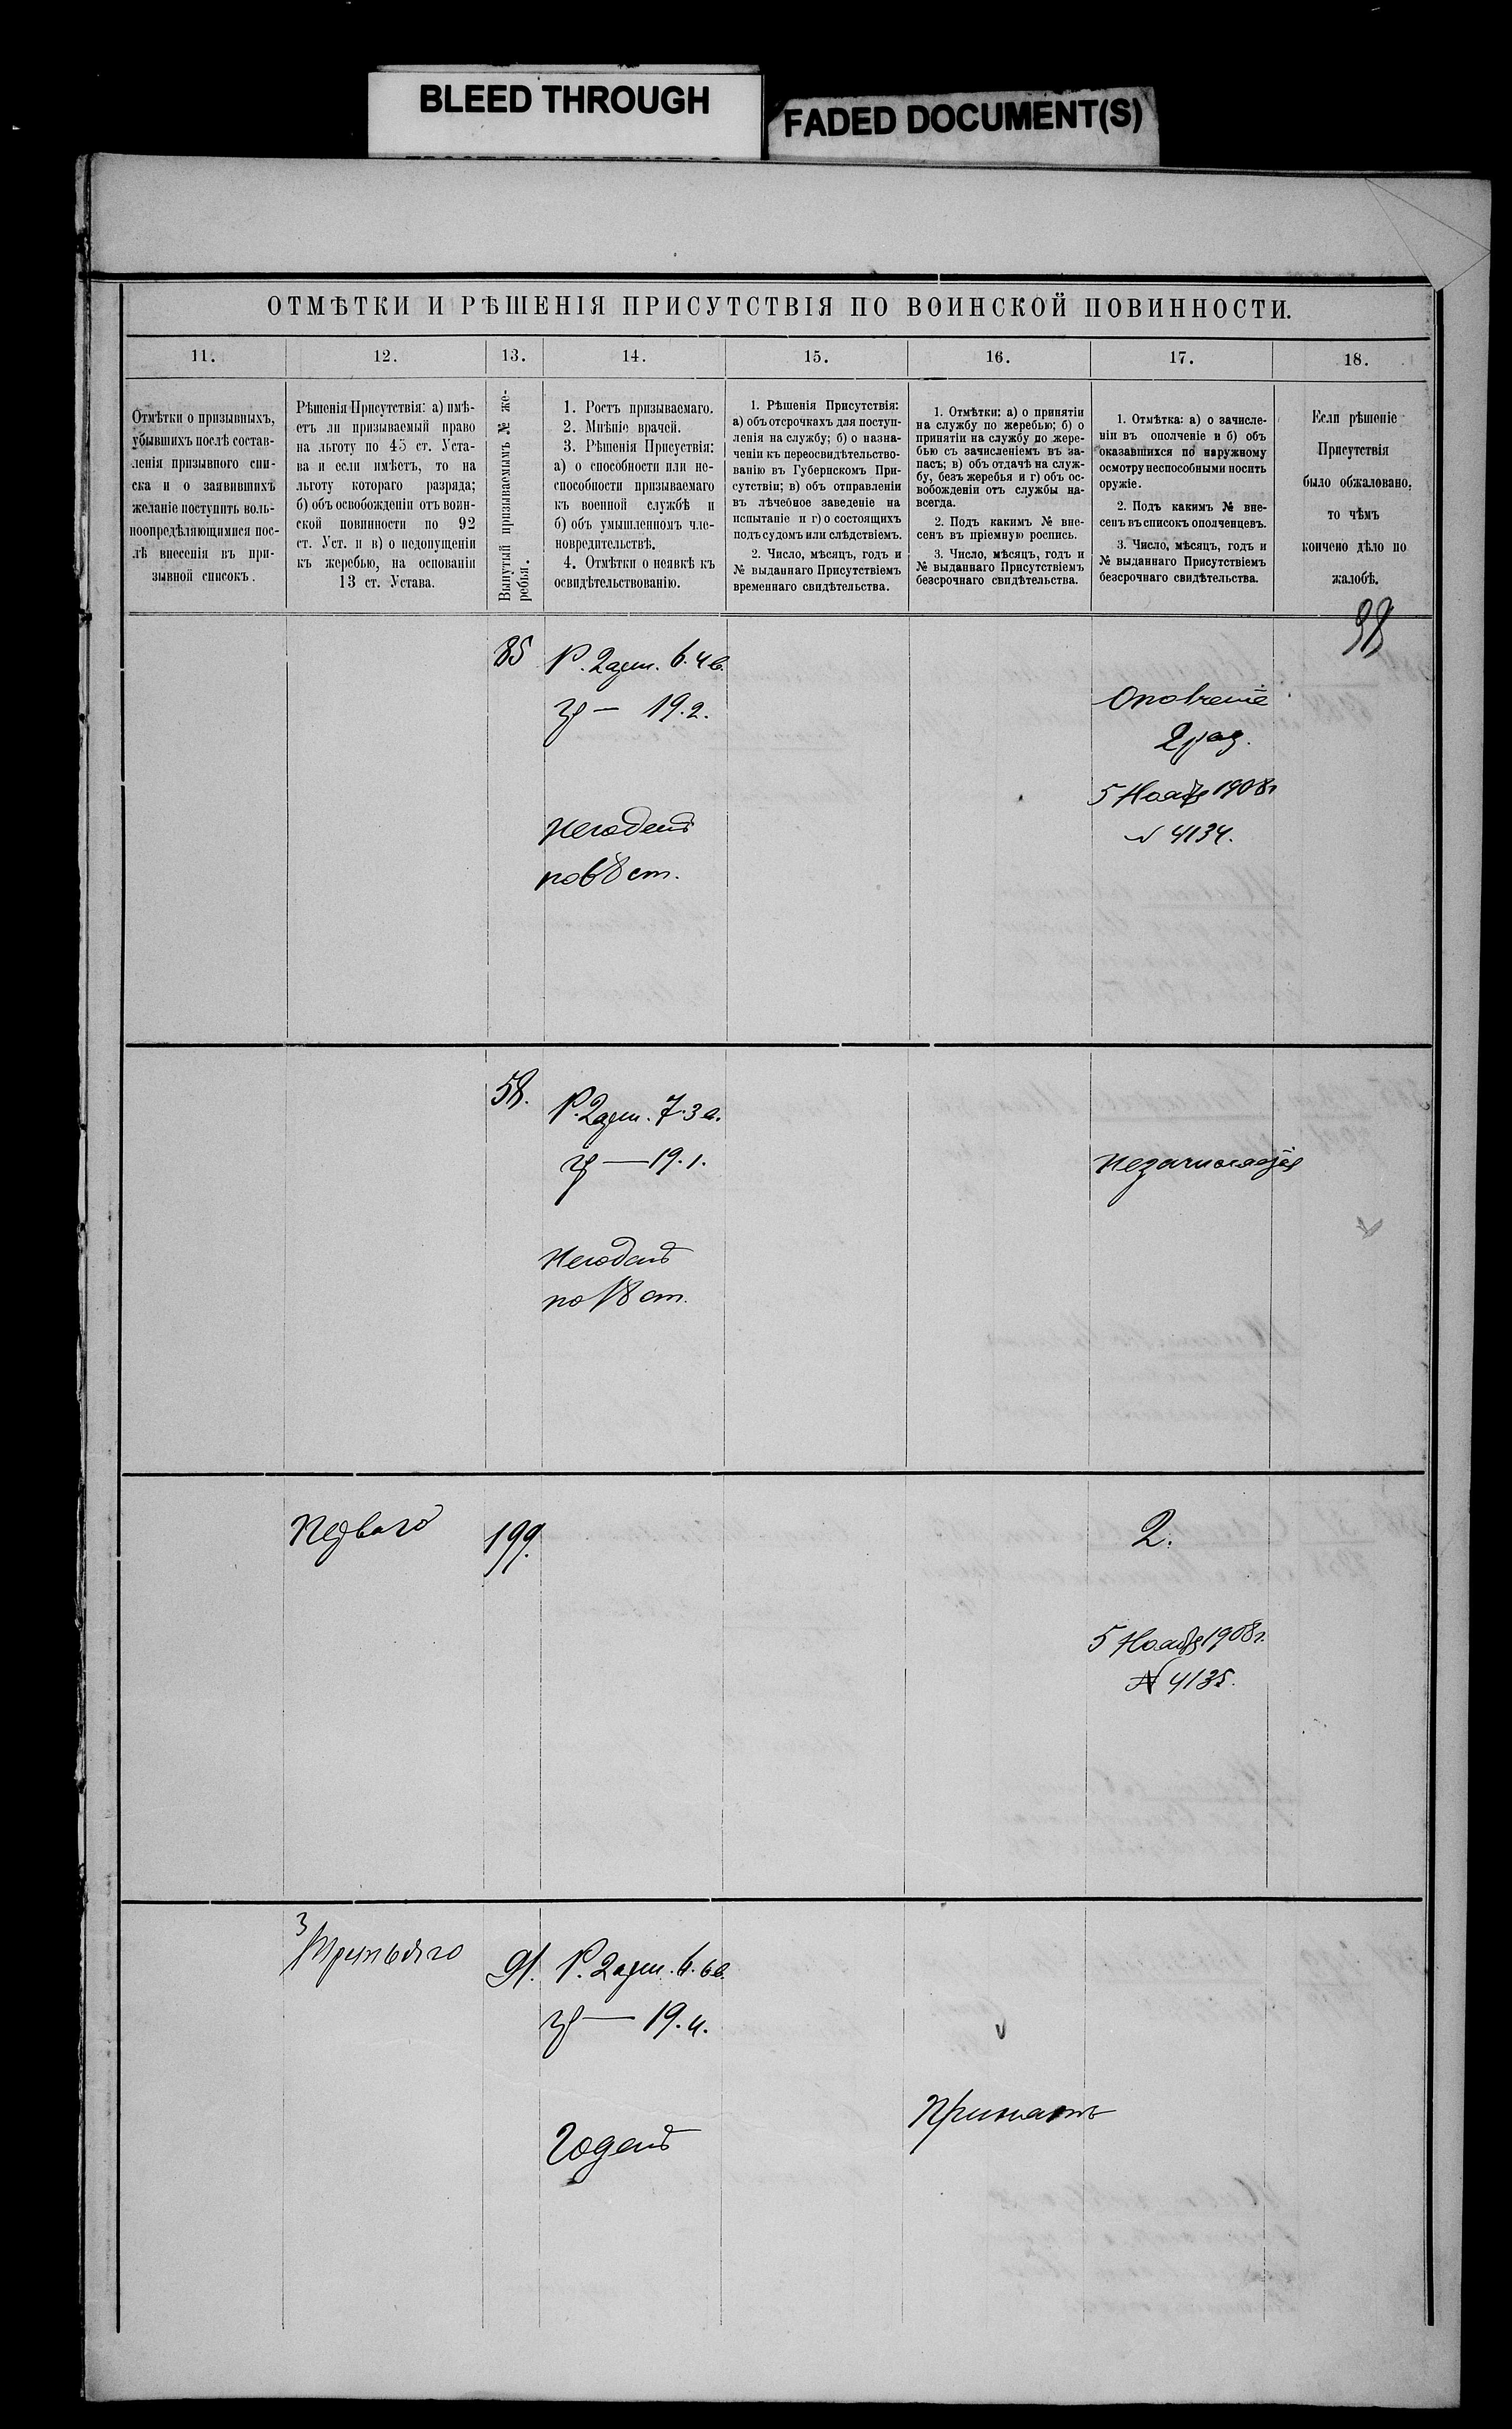 BLEED THROUGH
FADED DOCUMENT(S)
ОТМѢТКИ И РѢШЕНІЯ ПРИСУТСТВІЯ ПО ВОИНСКОЙ ПОВИННОСТИ.
11.
12.
13.
14.
15.
16.
17.
18.
Отмѣтки о призывныхъ,
убывшихъ послѣ состав-
ленія призывного спи-
ска и о заявившихъ
желаніе поступить воль-
ноопредѣляющимися пос-
лѣ внесенія въ при-
зывной списокъ.
Рѣшенія Присутствія: а) имѣ-
етъ ли призываемый право
на льготу по 45 ст. Уста-
ва и если имѣетъ, то на
льготу котораго разряда;
б) объ освобожденіи отъ воин-
ской повинности по 92
ст. Уст. и в) о недопущеніи
къ жеребью, на основаніи
13 ст. Устава.
Вынутый призываемымъ № же-
ребья.
1. Ростъ призываемаго.
2. Мнѣніе врачей.
3. Рѣшенія Присуствія:
а) о способности или не-
способности призываемаго
къ военной службѣ и
б) объ умышленномъ чле-
новредительствѣ.
4. Отмѣтки о неявкѣ къ
освидѣтельствованію.
1. Рѣшенія Присутствія:
а) объ отсрочкахъ для поступ-
ленія на службу; б) о назна-
ченіи къ переосвидѣтельство-
ванію въ Губернскомъ При-
сутствіи; в) объ отправленіи
въ лѣчебное заведеніе на
испытаніе и г) о состоящихъ
подъ судомъ или слѣдствіемъ.
2. Число, мѣсяцъ, годъ и
№ выданнаго Присутствіемъ
временнаго свидѣтельства.
1. Отмѣтки: а) о принятіи
на службу по жеребью; б) о
принятіи на службу по жере-
бью съ зачисленіемъ въ за-
пасъ; в) объ отдачѣ на служ-
бу, безъ жеребья и г) объ ос-
вобожденіи отъ службы на-
всегда.
2. Подъ какимъ № вне-
сенъ въ пріемную роспись.
3. Число, мѣсяцъ, годъ и
№ выданнаго Присутствіемъ
безсрочнаго свидѣтельства.
1. Отмѣтка: а) о зачисле-
ніи въ ополченіе и б) объ
оказавшихся по наружному
осмотру неспособными носить
оружіе.
2. Подъ какимъ № вне-
сенъ въ списокъ ополченцевъ.
3. Число, мѣсяцъ, годъ и
№ выданнаго Присутствіемъ
безсрочнаго свидѣтельства.
Если рѣшеніе
Присутствія
было обжаловано,
то чѣмъ
кончено дѣло по
жалобѣ.
98
85
Р. 2 арш. 6. 4 в.
гр — 19. 2.
Негоденъ
по 68 ст.
Ополченіе
2 раз.
5 Нояб 1908 г
№ 4134.
58.
Р. 2 арш. 7. 3 в.
гр — 19. 1.
Негоденъ
по 18 ст.
Перваго
199.
2.
5 Нояб 1908 г.
№ 4135.
3
Третьяго
91.
Р. 2 арш. 6. 6 в.
гр — 19. 4.
Годенъ
Принять